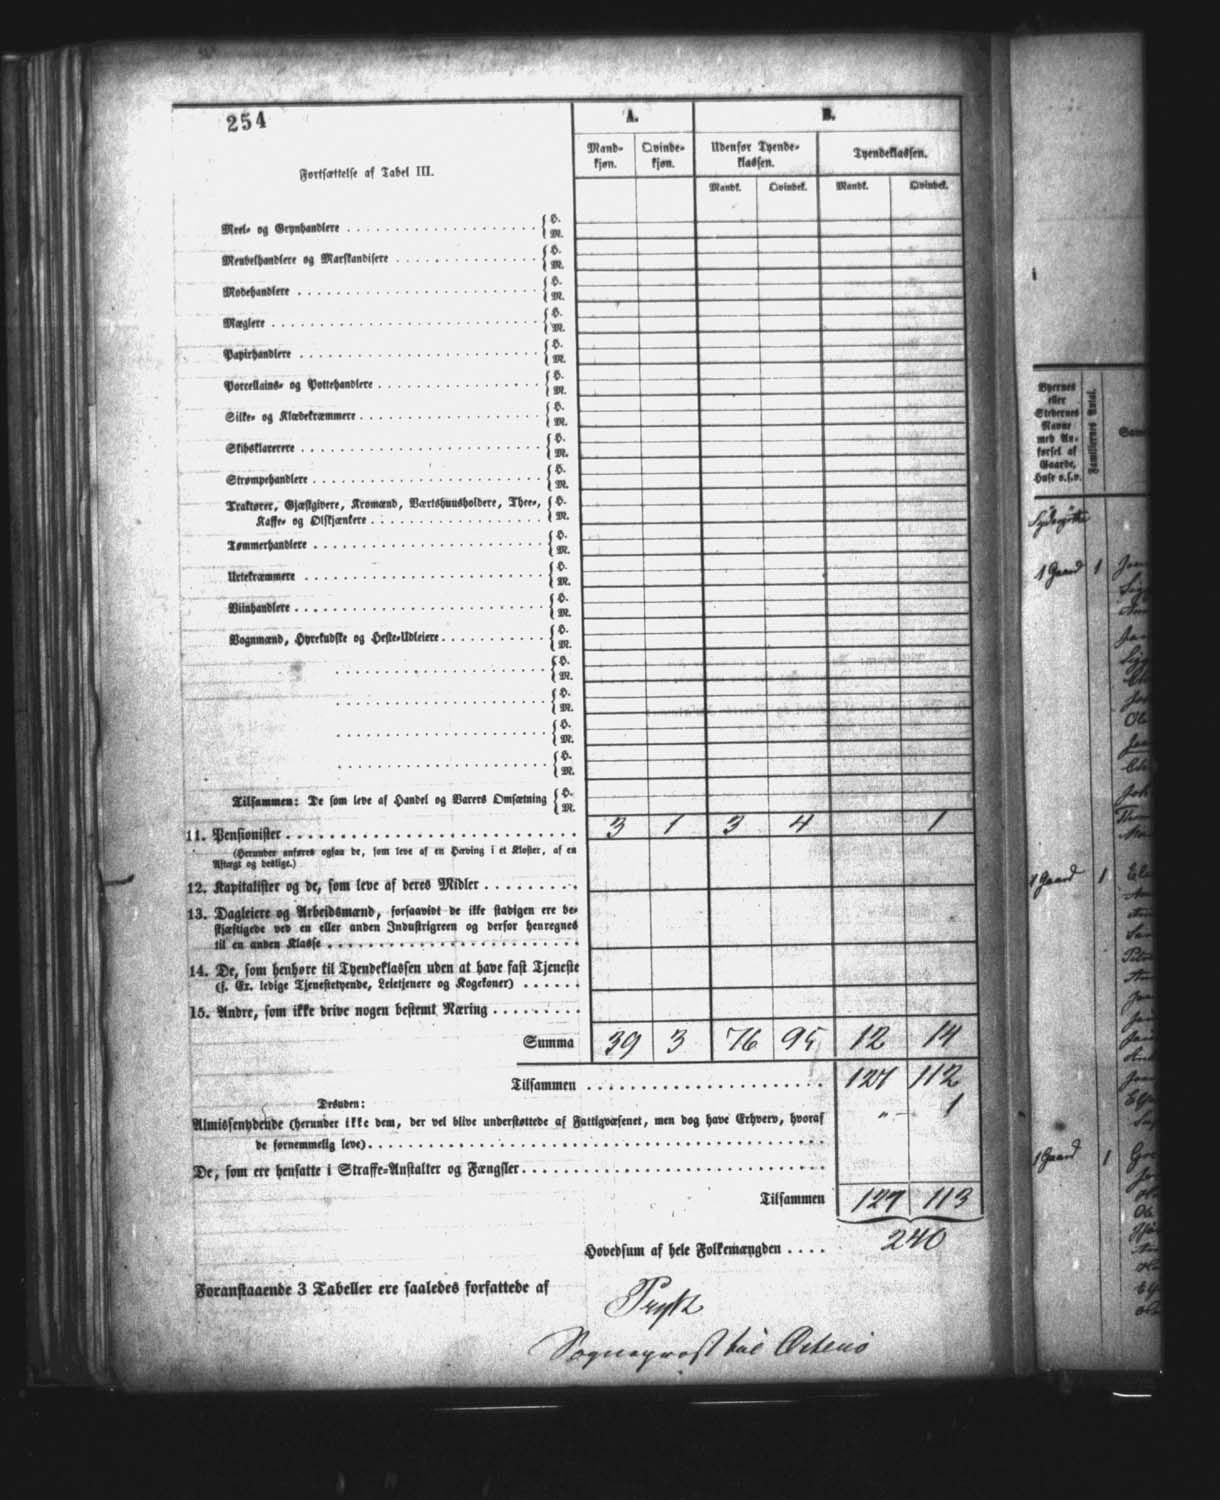 254
A.
B.
Fortsættelse af Tabel III.
Mand-kjøn.
Qvinde-kjøn.
Udenfor Tyende-klassen.
Tyendeklassen.
Mandk.
Qvindek.
Mandk.
Qvindek.
Meel- og Grynhandlere { H. M.
Meubelhandlere og Marskandisere { H. M.
Modehandlere { H. M.
Mæglere { H. M.
Papirhandlere { H. M.
Porcellains- og Pottehandlere { H. M.
Silke- og Klædekræmmere { H. M.
Skibsklarerere { H. M.
Strømpehandlere { H. M.
Traktører, Gjæstgivere, Kromænd, Værtshuusholdere, Thee-,
Kaffe- og Ølskjænkere { H. M.
Tømmerhandlere { H. M.
Urtekræmmere { H. M.
Viinhandlere { H. M.
Vognmænd, Hyrekudske og Heste-Udleiere { H. M.
{ H. M.
{ H. M.
{ H. M.
{ H. M.
Tilsammen: De som leve af Handel og Varers Omsætning { H. M.
11. Pensionister 3 1 3 4 1
(Herunder anføres ogsaa de, som leve af en Hæving i et Kloster, af en
Aftægt og deslige.)
12. Kapitalister og de, som leve af deres Midler
13. Dagleiere og Arbeidsmænd, forsaavidt de ikke stadigen ere be-
skjæftigede ved en eller anden Industrigreen og derfor henregnes
til en anden Klasse
14. De, som henhøre til Tyendeklassen uden at have fast Tjeneste
(f. Ex. ledige Tjenestetyende, Leietjenere og Kogekoner)
15. Andre, som ikke drive nogen bestemt Næring
Summa 39 3 76 95 12 14
Tilsammen 127 112
Desuden:
Almissenydende (herunder ikke dem, der vel blive understøttede af Fattigvæsenet, men dog have Erhverv, hvoraf
de fornemmelig leve) „ 1
De, som ere hensatte i Straffe-Anstalter og Fængsler
Tilsammen 127 113
Hovedsum af hele Folkemængden 240
Foranstaaende 3 Tabeller ere saaledes forfattede af
Sogneprost til
Byernes
eller
Stedernes
Navne
med An-
førsel af
Gaarde,
Huse o.s.v.
Familiernes Antal.
1 Gaard 1
1 Gaard 1
1 Gaard 1